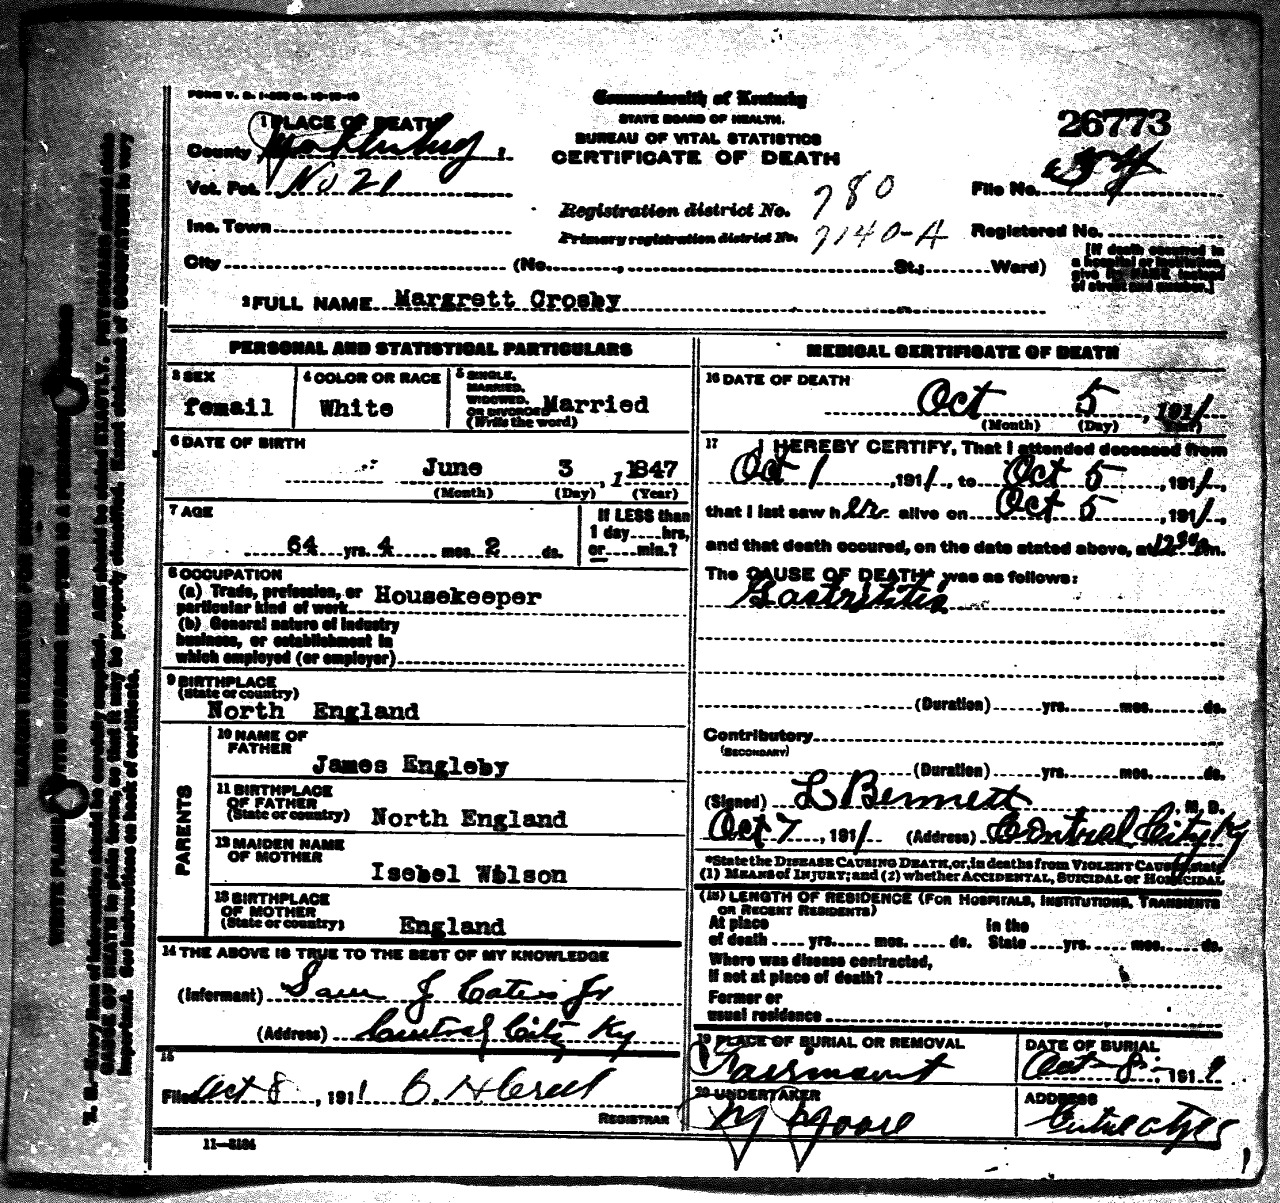 FORM V. S.
Commonwealth of Kentucky
STATE BOARD OF HEALTH.
BUREAU OF VITAL STATISTICS
CERTIFICATE OF DEATH
26773
1 PLACE OF DEATH
County
Vot. Pct. No 21
File No.
Inc. Town
Registration district No. 780
Primary registration district No. 7140-A
Registered No.
City (No. , St.; Ward)
[If death occurred in
a hospital or institution,
give its NAME instead
of street and number.]
2 FULL NAME Margrett Crosby
PERSONAL AND STATISTICAL PARTICULARS
3 SEX
femail
4 COLOR OR RACE
White
5 SINGLE,
MARRIED,
WIDOWED,
OR DIVORCED
(Write the word)
Married
6 DATE OF BIRTH
June 3 , 1847
(Month) (Day) (Year)
7 AGE
64 yrs. 4 mos. 2 ds.
If LESS than
1 day....hrs,
or....min.?
8 OCCUPATION
(a) Trade, profession, or
particular kind of work Housekeeper
(b) General nature of industry
business, or establishment in
which employed (or employer)
9 BIRTHPLACE
(State or country)
North England
PARENTS
10 NAME OF
FATHER
James Engleby
11 BIRTHPLACE
OF FATHER
(State or country) North England
12 MAIDEN NAME
OF MOTHER
Isebel Wilson
13 BIRTHPLACE
OF MOTHER
(State or country) England
14 THE ABOVE IS TRUE TO THE BEST OF MY KNOWLEDGE
(Informant) Sam J Jr
(Address) Central City Ky
15
Filed Oct 8 , 1911
REGISTRAR
11—3184
MEDICAL CERTIFICATE OF DEATH
16 DATE OF DEATH
Oct 5 , 1911
(Month) (Day) (Year)
17 I HEREBY CERTIFY, That I attended deceased from
Oct 1 , 1911, to Oct 5 , 1911,
that I last saw her alive on Oct 5 , 1911,
and that death occured, on the date stated above, at 12 m.
The CAUSE OF DEATH* was as follows:
Gastritis
(Duration) yrs. mos. ds.
Contributory
(SECONDARY)
(Duration) yrs. mos. ds.
(Signed) L Bennett M. D.
Oct 7 , 1911 (Address) Central City Ky
*State the DISEASE CAUSING DEATH, or, in deaths from VIOLENT CAUSES, state
(1) MEANS of INJURY; and (2) whether ACCIDENTAL, SUICIDAL or HOMICIDAL
(18) LENGTH OF RESIDENCE (FOR HOSPITALS, INSTITUTIONS, TRANSIENTS
OR RECENT RESIDENTS)
At place in the
of death .... yrs. mos. ds. State yrs. mos. ds.
Where was disease contracted,
If not at place of death?
Former or
usual residence
19 PLACE OF BURIAL OR REMOVAL
Fairmount
DATE OF BURIAL
Oct 8 , 191
20 UNDERTAKER
Moore
ADDRESS
MARGIN RESERVED FOR BINDING
WRITE PLAINLY WITH UNFADING INK—THIS IS A PERMANENT
N. B.—Every item of information should be carefully supplied. AGE should be stated EXACTLY. PHYSICIANS should state
CAUSE OF DEATH in plain terms, so that it may be properly classified. Exact statement of OCCUPATION is very
important. See instructions on back of certificate.